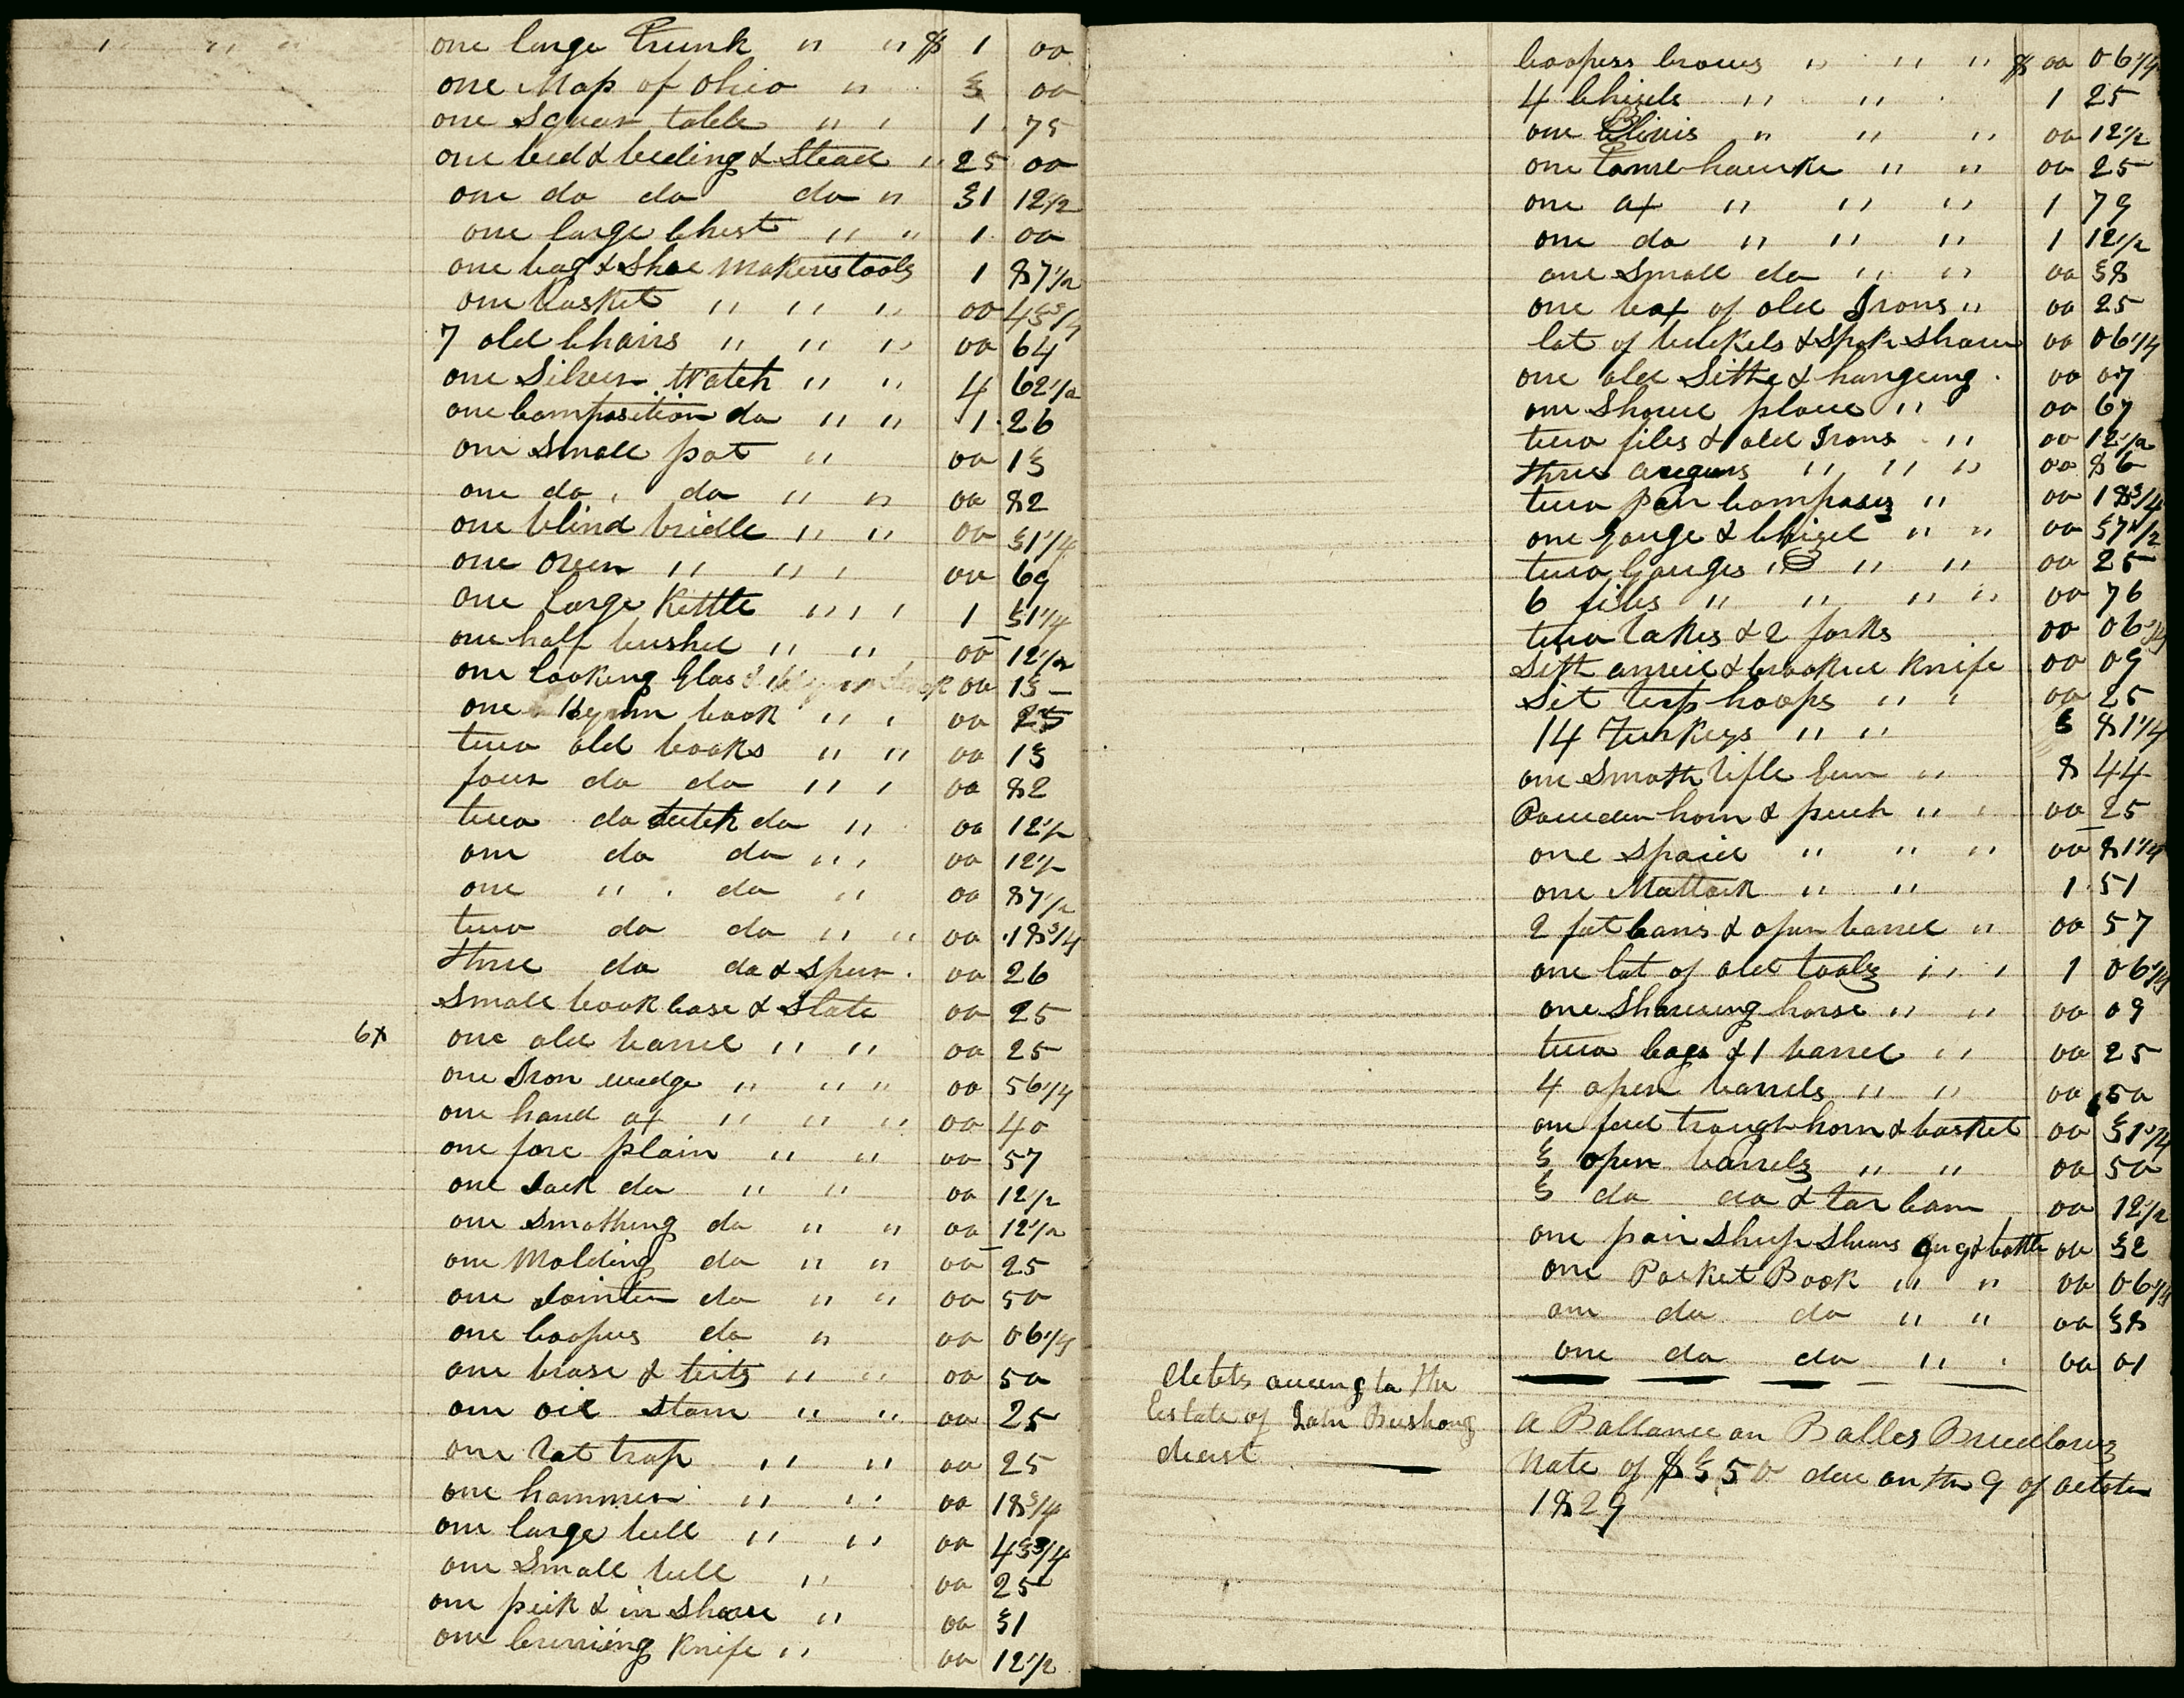 " " " one large Trunk " " $ 1 00
one Map of Ohio " 3 00
one Squar table " " 1 75
one bed & beding & Stead " 25 00
one do do do " 31 12 1/2
one large Chest " " 1 00
one bag & Shoe makers tools 1 87 1/2
one basket " " " 00 43 3/4
7 old Chairs " " " 00 64
one Silver Watch " " 4 62 1/2
one Composition do " " 1 26
one Small pot " 00 13
one do do " " 00 82
one blind bridle " " 00 31 1/4
one oven " " " 00 69
one large Kettle " " " 1 31 1/4
one half bushel " " 00 12 1/2
one looking Glas 00 13
one Hymn book " " 00 25
two old books " " 00 13
four do do " " 00 82
two do dutch do " 00 12 1/2
one do do " " 00 12 1/2
one " do " 00 87 1/2
two do do " " 00 18 3/4
three do do & Spur 00 26
Small book Case & Slate 00 25
6x one old barrel " " 00 25
one Iron wedge " " " 00 56 1/4
one hand ax " " " 00 40
one fore plain " " 00 57
one Jack do " " 00 12 1/2
one Smothing do " " 00 12 1/2
one Molding do " " 00 25
one Jointer do " " 00 50
one Coopers do " 00 06 1/4
one brase & bits " " 00 50
one oil Stone " " 00 25
one Rat trap " " 00 25
one hammer " " 00 18 3/4
one large bell " " 00 43 3/4
one Small bell " 00 25
one peck & in Shave " 00 31
one Currieing Knife " 00 12 1/2
Coopers Crows " " " $ 00 06 1/4
4 Chisels " " 1 25
one " " " 00 12 1/2
one Tomehawke " " 00 25
one ax " " " 1 79
one do " " " 1 12 1/2
one Small do " " 00 38
one box of old Irons " 00 25
lot of buckels & Spok Shave 00 06 1/4
one old Sithe & hangeing 00 07
one Shove plane " 00 67
two files & old Irons " 00 12 1/2
three augurs " " " 00 86
two pair Compases " 00 18 3/4
one Gouge & Chizel " " 00 37 1/2
two Gouges " " " 00 25
6 files " " " " 00 76
two Rakes & 2 forks 00 06 1/4
Sith anveil & Crooked Knife 00 09
Sit hoops " " 00 25
14 Turkeys " " 3 81 1/4
one Smoth Rifle Gun " 8 44
Powder horn & puch " " 00 25
one Spaid " " " 00 81 1/4
one Mattock " " 1 51
2 fat Cans & open barrel " 00 57
one lot of old tools " " 1 06 1/4
one Shaveing horse " " 00 09
two bags & 1 barrel " " 00 25
4 open barrels " " 00 50
one feed trough horn & basket 00 31 1/4
3 open barrels " " 00 50
3 do do & tar Cann 00 12 1/2
one pair Sheep Shears Gug & bottle 00 32
one Pocket Book " " 00 06 1/4
one do do " " 00 38
one do do " " 00 01
debts oweing to the
Estate of John Bushong
decest
A Ballance on Balles Breedloves
Note of $3 50 due on the 9 of october
1829